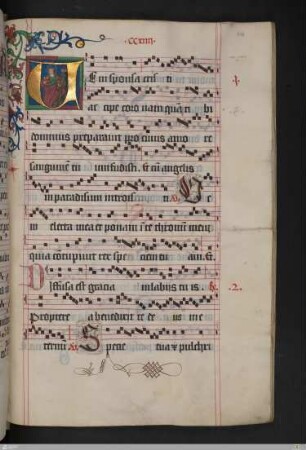 CCXIIII
Veni sponsa cris ti
ac cipe coro nam quam ti bi
dominus preparavit pro cuius amo re
sanguinem tu um fudisti et cum angelis
in paradisum introis ti v. Ve
ni electa mea et ponam in te thronum meum
quia concupivit rex speciem tu am. et
Diffusa est gracia in labiis tu is R. 2.
Propterea benedixit te de us in e
ternum v. Specie tua et pulchri